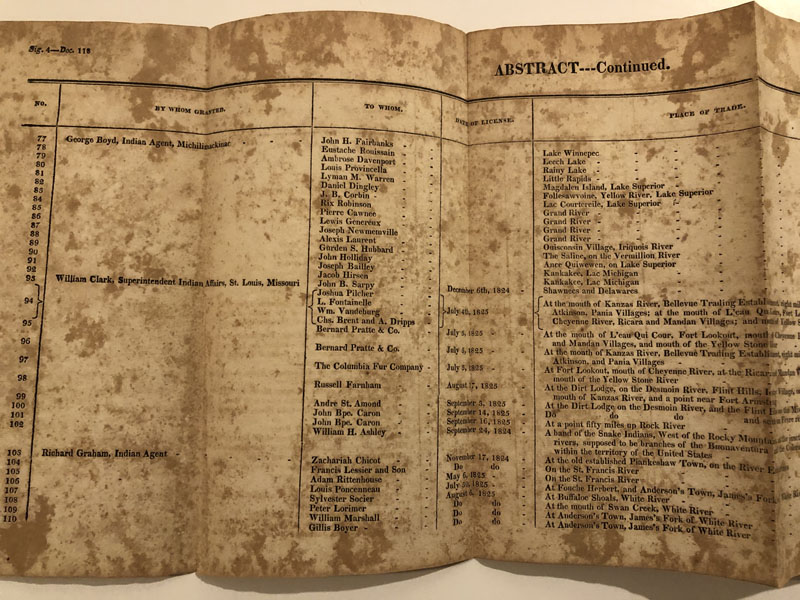 Sig. 4—Doc. 118
ABSTRACT---Continued.
NO. BY WHOM GRANTED. TO WHOM. DATE OF LICENSE. PLACE OF TRADE.
77 George Boyd, Indian Agent, Michilimackinac - John H. Fairbanks Lake Winnepec
78 Eustache Roussain Leech Lake
79 Ambrose Davenport Rainy Lake
80 Louis Provincella Little Rapids
81 Lyman M. Warren Magdalen Island, Lake Superior
82 Daniel Dingley Follesawvoine, Yellow River, Lake Superior
83 J. B. Corbin Lac Courtereile, Lake Superior
84 Rix Robinson Grand River
85 Pierre Cawnee Grand River
86 Lewis Genereux Grand River
87 Joseph Newmemville Grand River
88 Alexis Laurent Ouisconsin Village, Iriquois River
89 Gurden S. Hubbard The Saline, on the Vermillion River
90 John Holliday Ance Quiwewen, on Lake Superior
91 Joseph Bailley Kankakee, Lac Michigan
92 Jacob Hirsen Kankakee, Lac Michigan
93 William Clark, Superintendent Indian Affairs, St. Louis, Missouri John B. Sarpy December 6th, 1824 Shawnees and Delawares
94 Joshua Pilcher At the mouth of Kanzas River, Bellevue Trading
L. Fontainelle July 4th, 1825 Atkinson, Pania Villages; at the mouth of L'eau
Wm. Vandeburg Cheyenne River, Ricara and Mandan Villages; and
Chs. Brent and A. Dripps
95 Bernard Pratte & Co. July 5, 1825 At the mouth of L'eau Qui Cour, Fort Lookout,
and Mandan Villages, and mouth of the Yellow Stone
96 Bernard Pratte & Co. July 5, 1825 At the mouth of Kanzas River, Bellevue Trading
Atkinson, and Pania Villages
97 The Columbia Fur Company July 5, 1825 At Fort Lookout, mouth of Cheyenne River, at the
mouth of the Yellow Stone River
98 Russell Farnham August 17, 1825 At the Dirt Lodge, on the Desmoin River, Flint Hills;
mouth of Kanzas River, and a point near Fort
99 Andre St. Amond September 5, 1825 At the Dirt Lodge on the Desmoin River, and the Flint
100 John Bpe. Caron September 14, 1825 Do do do do
101 John Bpe. Caron September 16, 1825 At a point fifty miles up Rock River
102 William H. Ashley September 24, 1824 A band of the Snake Indians, West of the Rocky
rivers, supposed to be branches of the Bonaventura
within the territory of the United States
103 Richard Graham, Indian Agent Zachariah Chicot November 17, 1824 At the old established Piankeshaw Town, on the River
104 Francis Lessier and Son Do do On the St. Francis River
105 Adam Rittenhouse May 6, 1825 On the St. Francis River
106 Louis Ponceneau July 1825 At Fouche Herbert, and Anderson's Town, James's Fork
107 Sylvester Socier August 6, 1825 At Buffaloe Shoals, White River
108 Peter Lorimer Do do At the mouth of Swan Creek, White River
109 William Marshall Do do At Anderson's Town, James's Fork of White River
110 Gillis Boyer Do do At Anderson's Town, James's Fork of White River